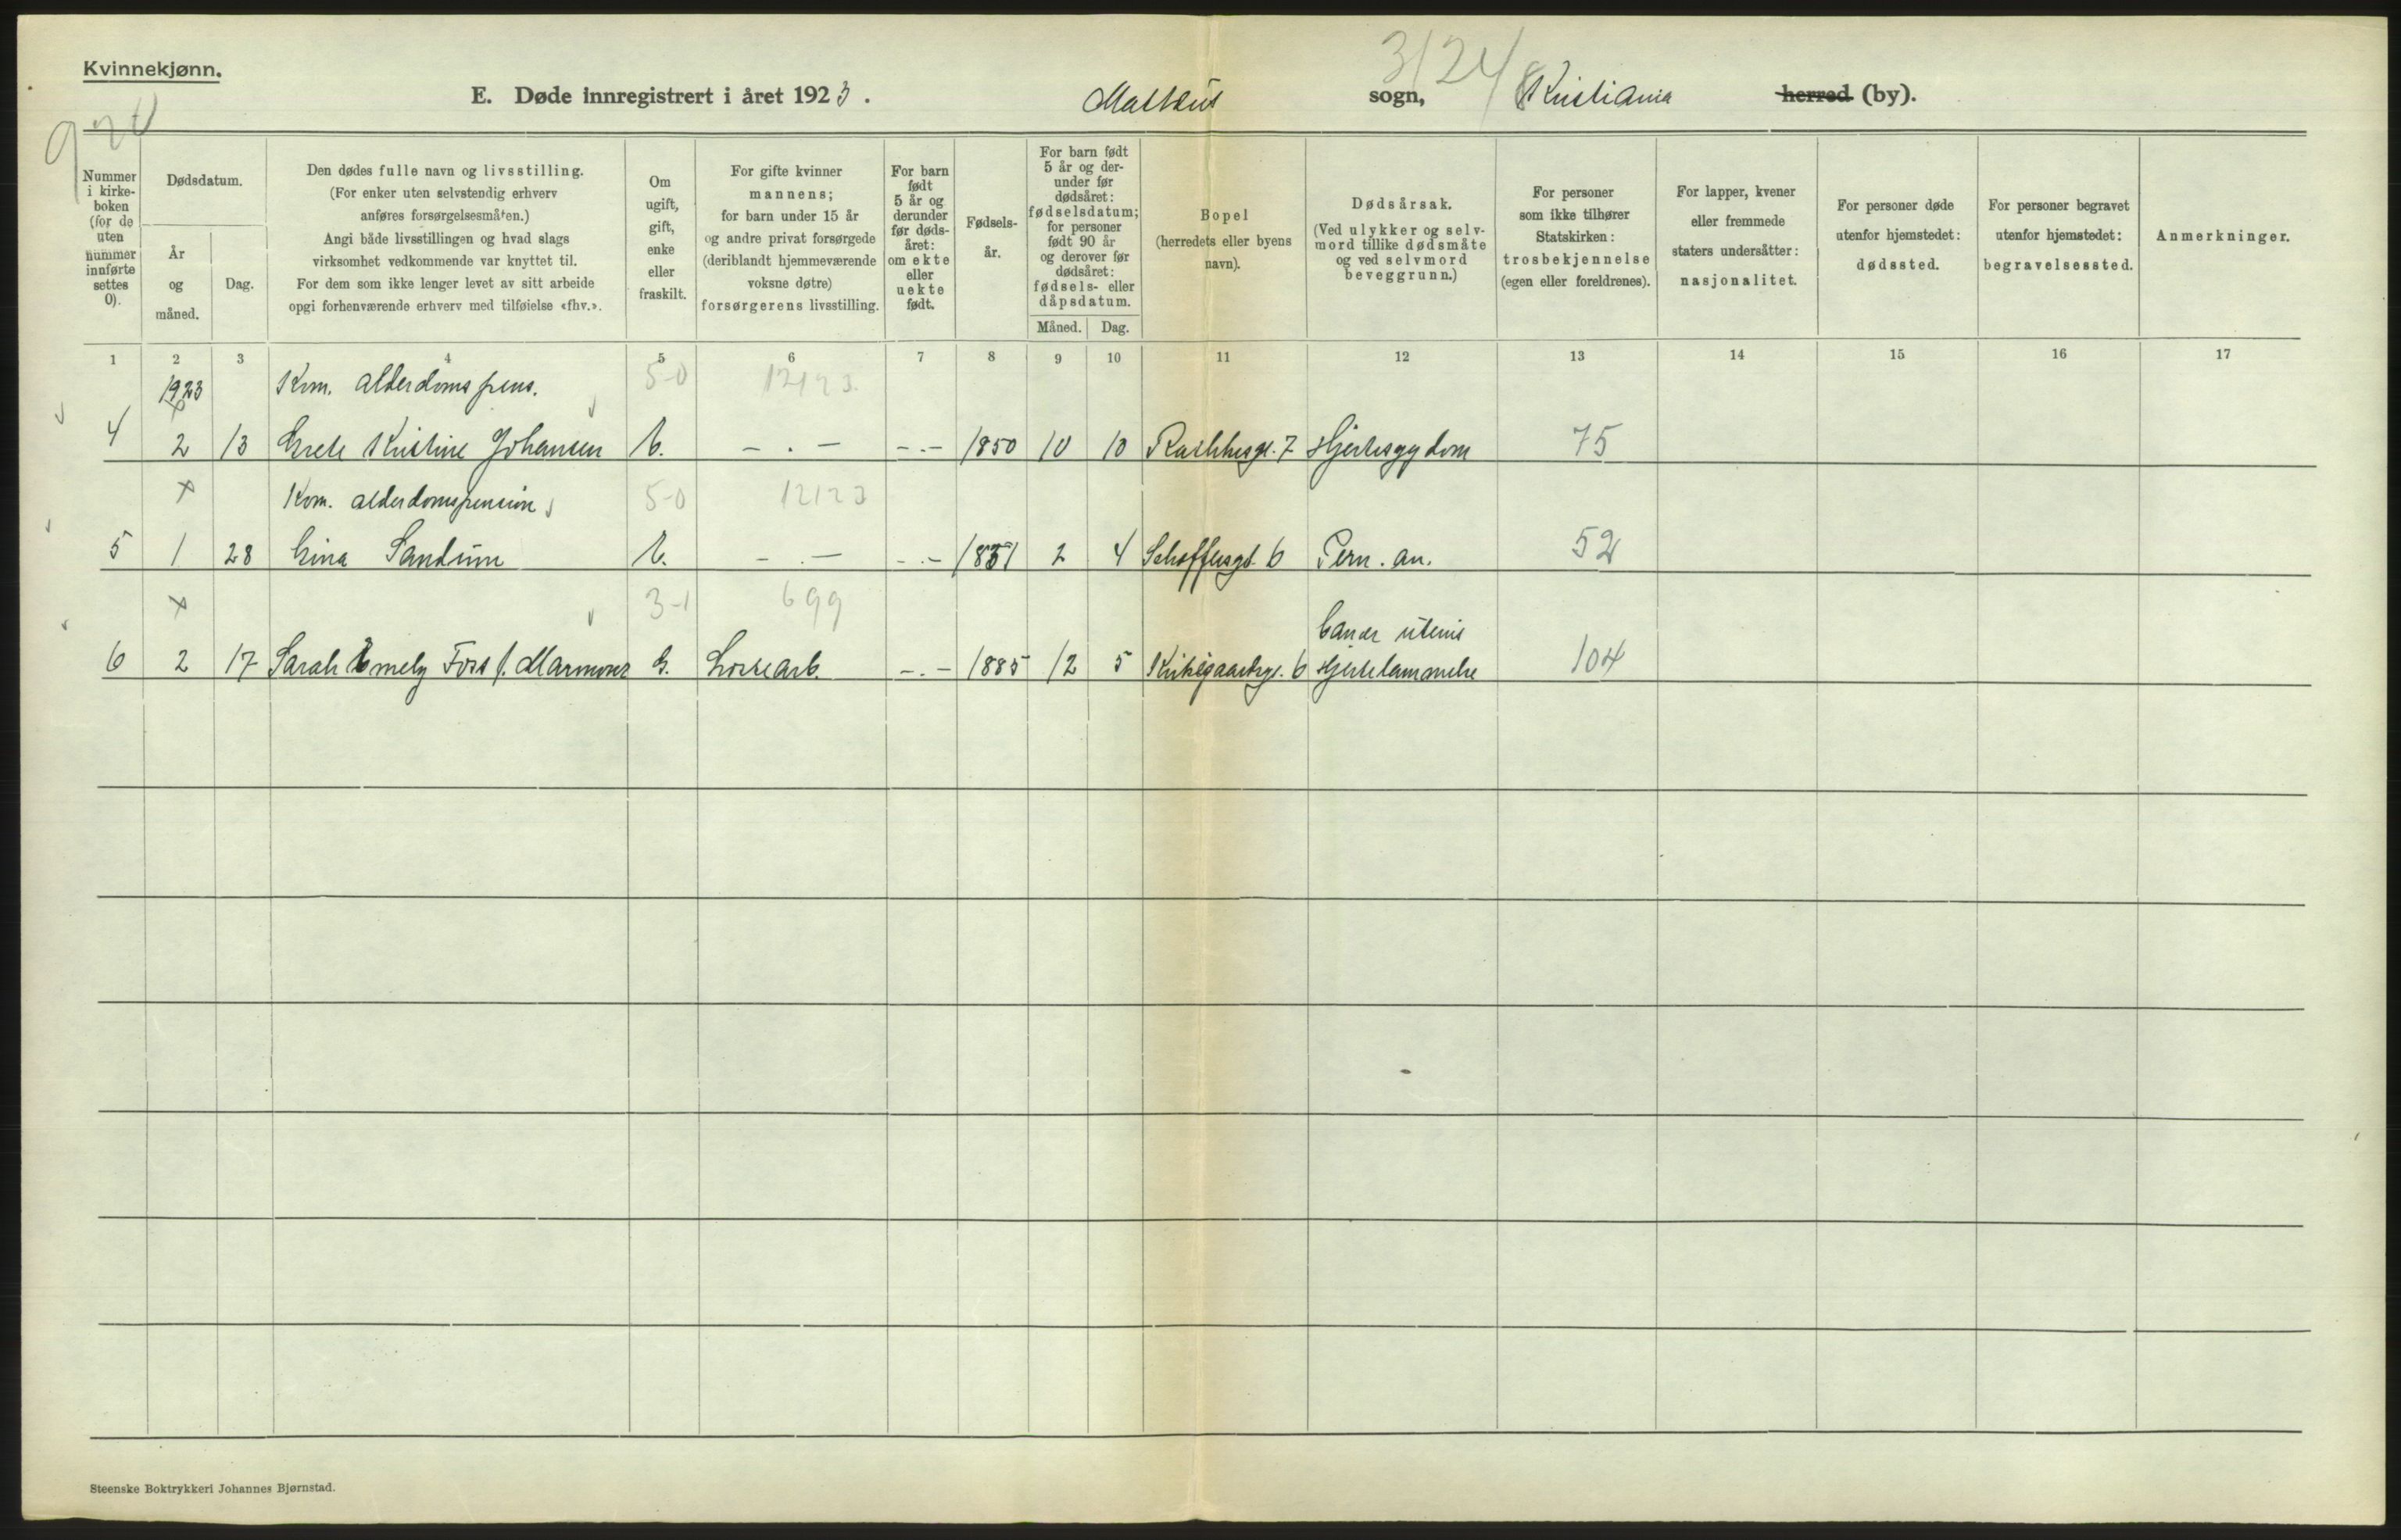 Kvinnekjønn.
E. Døde innregistrert i året 1923. Mattæus sogn, Kristiania herred (by).
3124
Nummer i kirke-boken (for de uten nummer innførte settes 0).
Dødsdatum.
År og måned.
Dag.
Den dødes fulle navn og livsstilling.
(For enker uten selvstendig erhverv
anføres forsørgelsesmåten.)
Angi både livsstillingen og hvad slags
virksomhet vedkommende var knyttet til.
For dem som ikke lenger levet av sitt arbeide
opgi forhenværende erhverv med tilføielse «fhv.».
Om ugift, gift, enke eller fraskilt.
For gifte kvinner
mannens;
for barn under 15 år
og andre privat forsørgede
(deriblandt hjemmeværende
voksne døtre)
forsørgerens livsstilling.
For barn født 5 år og derunder før døds-året: om ekte eller uekte født.
Fødsels-år.
For barn født 5 år og der-under før dødsåret: fødselsdatum; for personer født 90 år og derover før dødsåret: fødsels- eller dåpsdatum.
Måned. Dag.
Bopel
(herredets eller byens
navn).
Dødsårsak.
(Ved ulykker og selv-
mord tillike dødsmåte
og ved selvmord
beveggrunn.)
For personer
som ikke tilhører
Statskirken:
trosbekjennelse
(egen eller foreldrenes).
For lapper, kvener
eller fremmede
staters undersåtter:
nasjonalitet.
For personer døde
utenfor hjemstedet:
dødssted.
For personer begravet
utenfor hjemstedet:
begravelsessted.
Anmerkninger.
1 2 3 4 5 6 7 8 9 10 11 12 13 14 15 16 17
1923 Kom. alderdoms pens. 5-0 12123
4 2 13 Grete Kristine Johansen E. - . - - . - 1850 10 10 Rathkesgt. 7 Hjertesygdom 75
x Kom. alderdomspension 5-0 12123
5 1 28 Gina Sandum E. - . - - . - 1851 2 4 Schoffusgt. 6 Pern. an. 52
x 3-1 699
Cancer uteris
6 2 17 Sarah Emely Foss f. Marmoner G. Lossearb. - . - 1885 12 5 Kirkegaardsgt. 6 Hjertelammelse 104
Steenske Boktrykkeri Johannes Bjørnstad.